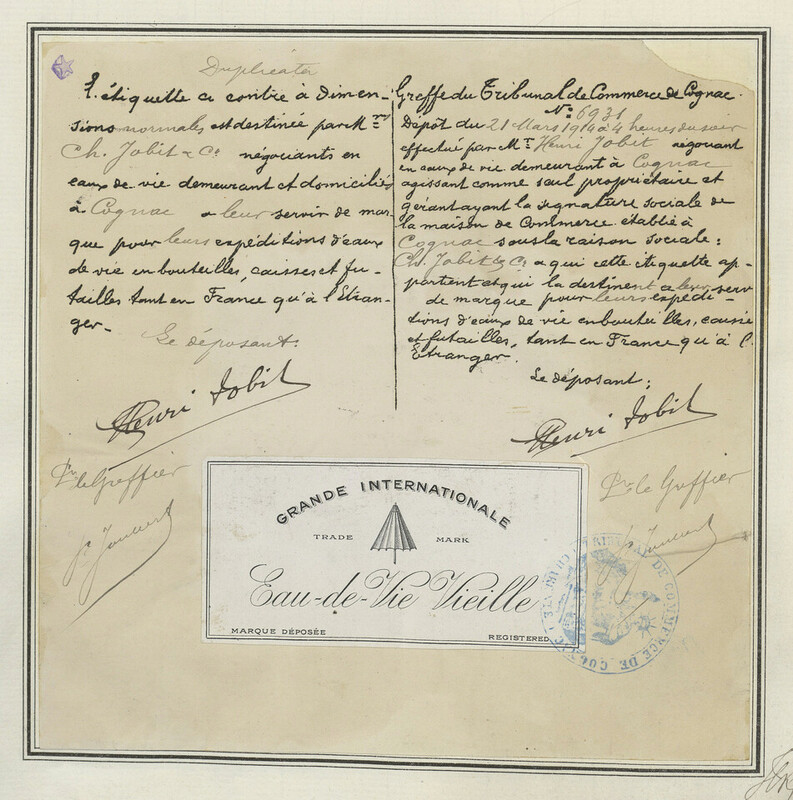 Duplicata
L'étiquette ci contre à dimen-
sions normales est destinée par Mrs
Ch. Jobit & Co négociants en
eaux de vie demeurant et domiciliés
à Cognac a leur servir de mar-
que pour leurs expéditions d'eaux
de vie en bouteilles, caisses et fu-
tailles tant en France qu'à l'Etran-
ger-
Le déposant:
Henri Jobit
Pr le Greffier
Greffe du Tribunal de Commerce de Cognac.
No 6931
Dépôt du 21 Mars 1914 à 4 heures du soir
effectué par Mr Henri Jobit négociant
en eaux de vie demeurant à Cognac
agissant comme seul propriétaire et
gérant ayant la signature sociale de
la maison de Commerce établie à
Cognac sous la raison sociale:
Ch. Jobit & Co a qui cette étiquette ap-
partient et qui la destinent a leur serv
de marque pour leurs expédi-
tions d'eaux de vie en bouteilles, caisse
et futailles, tant en France qu'à l'
Etranger.
Le déposant:
Henri Jobit
Pr le Greffier
GRANDE INTERNATIONALE
TRADE MARK
Eau-de-Vie Vieille
MARQUE DÉPOSÉE REGISTERED
TRIBUNAL DE COMMERCE DE COGNAC